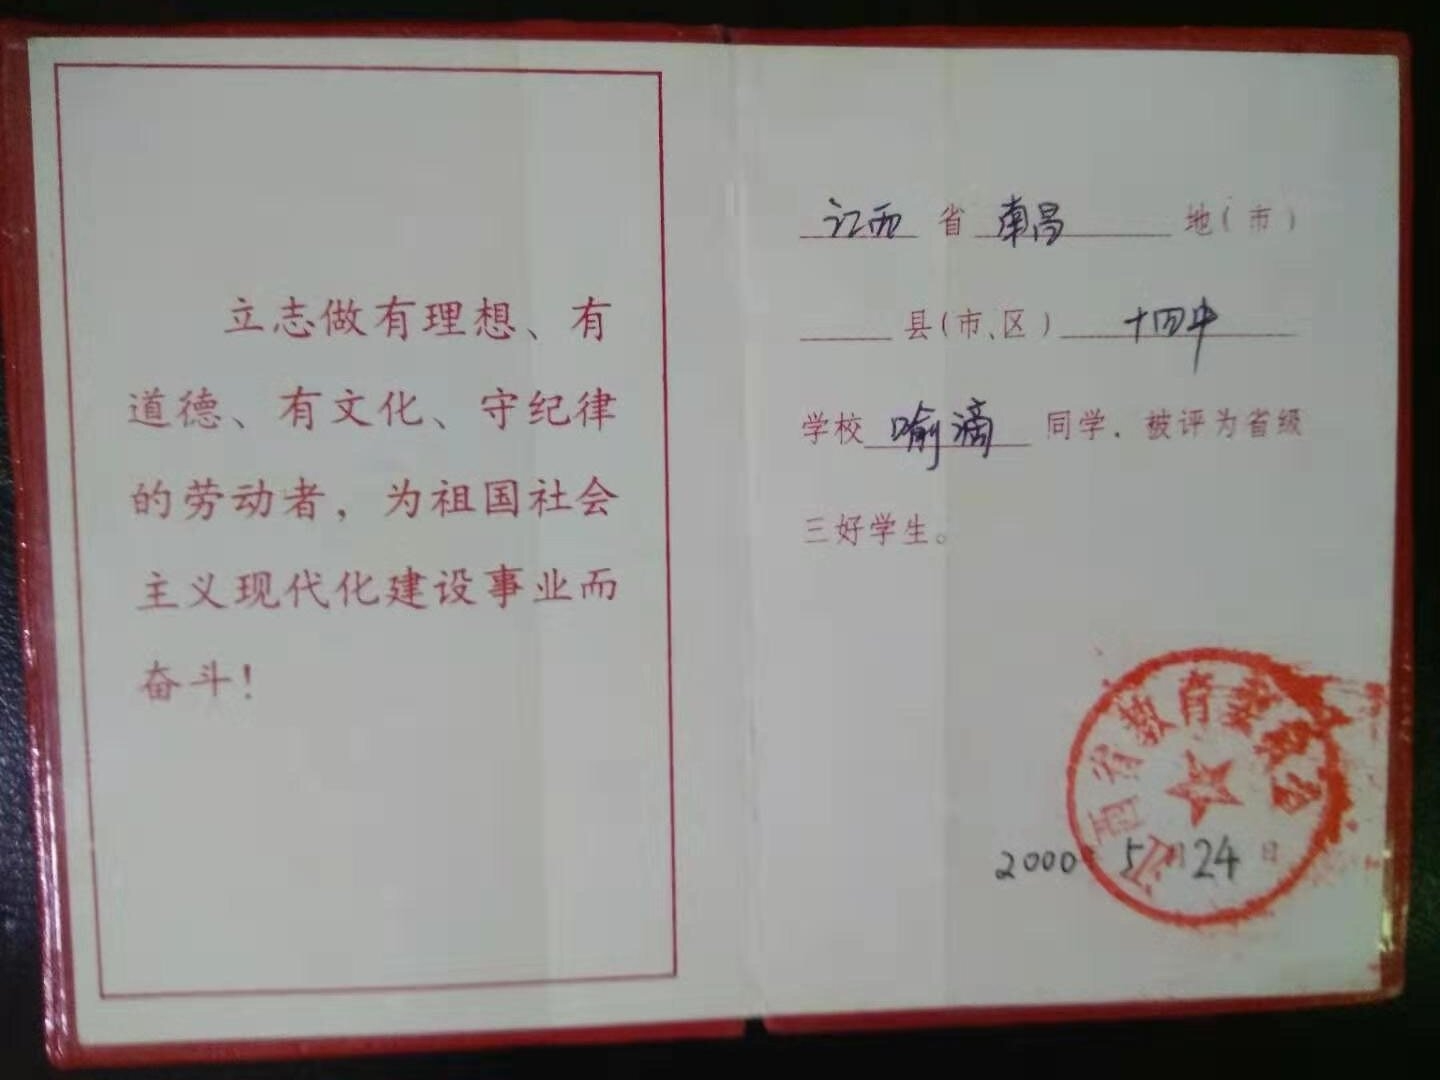 立志做有理想、有
道德、有文化、守纪律
的劳动者，为祖国社会
主义现代化建设事业而
奋斗！
江西 省 南昌 地(市)
县(市、区) 十四中
学校 喻滴 同学，被评为省级
三好学生。
江西省教育委员会
2000 5月24日